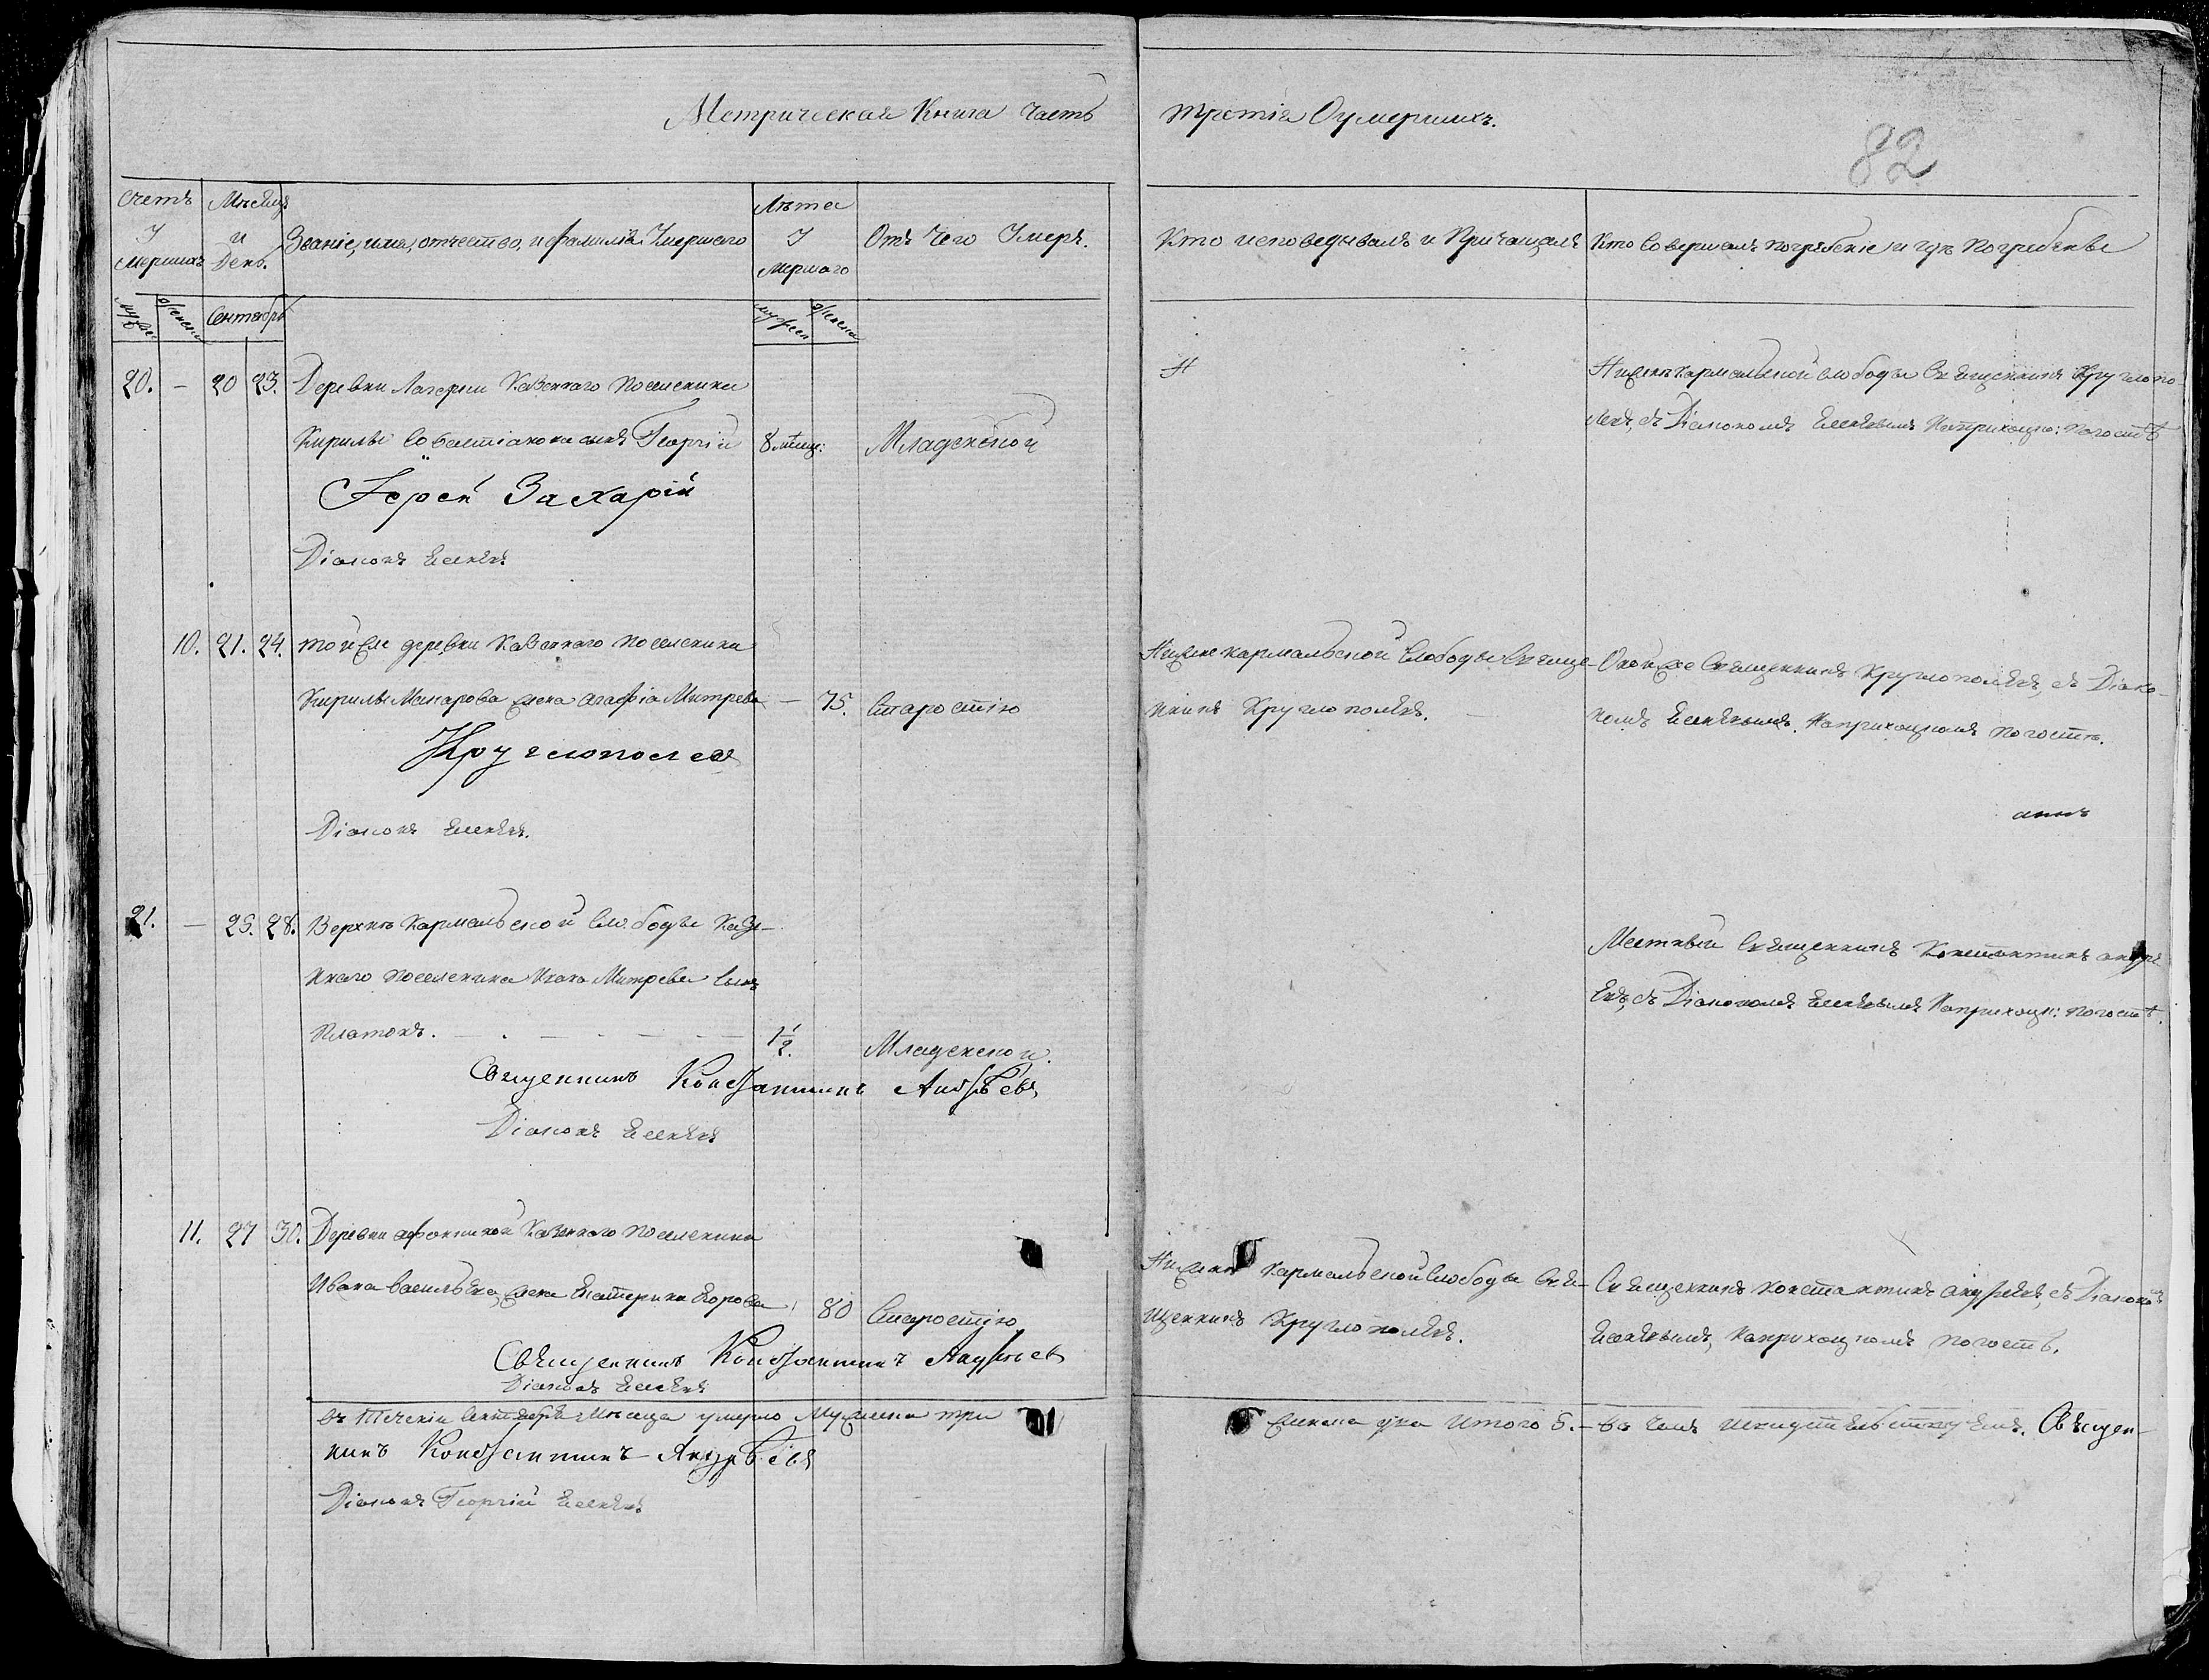 Метрическая Книга часть третія Оумершихъ.
82
Счетъ Умершихъ
Мѣсяцъ и День.
Званіе, имя, отчество, и фамилія Умершаго
Лѣта Умершаго
Отъ Чего Умеръ.
Кто исповедывалъ и Причащалъ
Кто Совершалъ погребеніе и гдѣ Погребены
мужес женска
Сентябрь
мужеск женска
20. — 20 23. Деревни Казеннаго Поселенина
Кирилы Совастіанова сынъ Георгій 8 мѣсяц: Младенской
Іерей Захарій
Діаконъ Есеневъ
Нижнекармальской слободы Священникъ Круглопо-
левъ, съ Діакономъ Есеневымъ Наприходско: погостѣ
10. 21. 24. той же деревни Казеннаго поселенина
Кирилы Макарова жена агафіа Митрева — 75. Старостію
Круглополев
Діаконъ Есеневъ.
Нижнекармальской Слободы Свяще-
нникъ Круглополевъ. —
Онойже Священникъ Круглополевъ, съ Діако-
номъ Есеневымъ. Наприходскомъ погостѣ.
21. — 25. 28. Верхнекармальской Слободы Казе-
ннаго поселенина Ивана Митрева Сынъ
Платонъ. — . — . — — 1½. Младенской.
Священникъ Константинъ Андрѣевъ
Діаконъ Есеневъ
Местный Священникъ Константинъ андре
евъ, съ Діакономъ Есеневымъ Наприходск: погостѣ.
11. 27 30. Деревни афонкиной Казеннаго Поселенина
Ивана Васильева, жена Екатерина Егорова, 80 Старостію
Священникъ Константинъ Андрѣев
Діаконъ Есеневъ
Нижнек Кармальской Слободы Свя-
щенникъ Круглополевъ.
Священникъ Константинъ андреевъ, съ Діакономъ
Есеневымъ, Наприходскомъ погостѣ.
въ Теченіи Сентября Мѣсяца умерло Мужеска три женска два Итого 5. — въ чемъ исвидѣтельствуемъ. Священ-
никъ Константинъ Андрѣевъ
Діаконъ Георгій Есеневъ